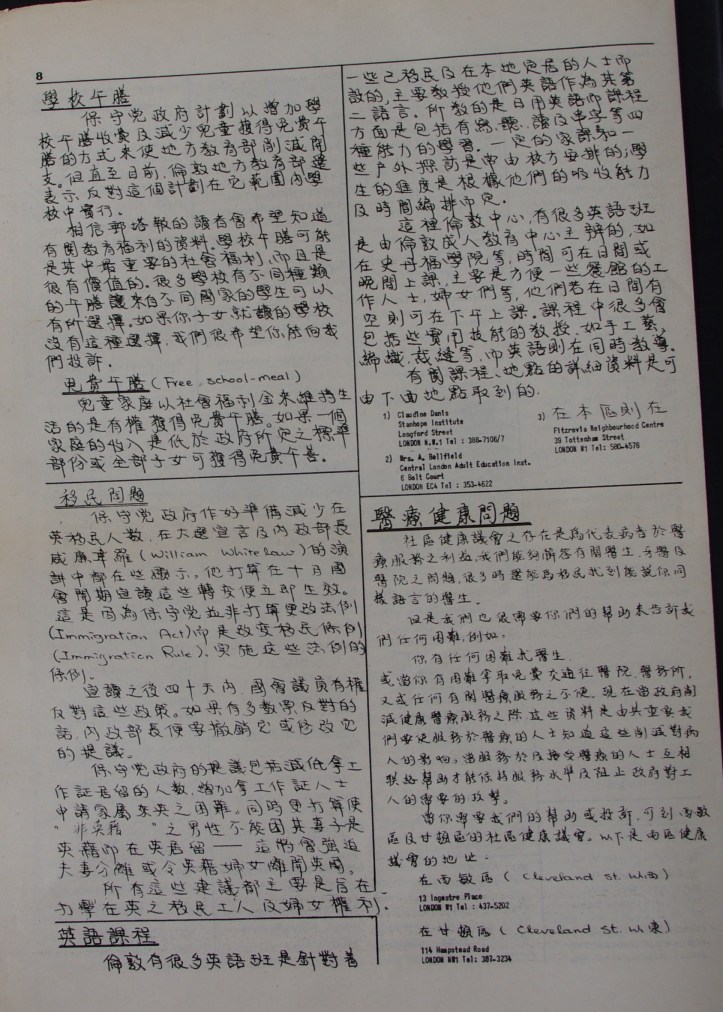 8
學校午膳
保守党政府計劃以增加學
校午膳收費及減少兒童獲得免費午
膳的方式來使地方教育部削減開
支。但直至目前,倫敦地方教育部還
表示反對這個計劃在它範圍內學
校中實行。
相信郵塔報的讀者會希望知道
有関教育福利的資料。學校午膳可能
是其中最重要的社會福利,而且是
很有價值的。很多學校有不同種類
的午膳讓來自不同國家的學生可以
有所選擇。如果你子女就讀的學校
沒有這種選擇,我們很希望你能向我
們投訴。
免費午膳(Free school-meal)
兒童家庭以社會福利金來維持生
活的是有權獲得免費午膳。如果一個
家庭的收入是低於政府所定之標準
部份或全部子女可獲得免費午善。
移民問題
保守党政府作好準備減少在
英移民人數,在大選宣言及內政部長
威廉韋羅(William Whitelaw)的演
講中都在些顯示。他打算在十月國
會開期宣讀這些轉变便立即生效。
這是因為保守党並非打算更改法例
(Immigration Act)而是改变移民條例
(Immigration Rule),实施这些法例的
條例。
宣讀之後四十天內,國會議員有權
反對這些政策。如果有多数票反對的
話,內政部長便要撤銷它或修改它
的提議。
保守党政府的提議包括減低拿工
作証居留的人数,增加拿工作証人士
申請家屬來英之困难。同時更打算使
"非英籍 "之男性不能因其妻子是
英籍而在英居留——這將會強迫
夫妻分離或令英籍婦女離開英國。
所有這些建議都主要是旨在
打擊在英之移民工人及婦女權利.
英語課程
倫敦有很多英語班是針對着
一些已移民及在本地定居的人士而
設的,主要教授他們英語作為其第
二語言。所教的是日用英語而課程
方面是包括有寫、聽、讀及串字等四
種能力的學習。一定的家課和一
些户外探訪是由校方安排的;學
生的進度是根據他們的吸收能力
及時間編排而定。
這裡倫敦中心,有很多英語班
是由倫敦成人教育中心主辨的,如
在史丹福學院等,時間可在日間或
晚間上課,主要是方便一些餐館的工
作人士,婦女們等,他們若在日間有
空則可在下午上課。課程中很多會
包括些實用技能的教授,如手工藝,
編織,裁縫等,而英語則在同時教導。
有関課程、地點的詳細資料是可
由下面地點取到的.
1) Claudine Danis
Stanhope Institute
Longford Street
LONDON N.W.1 Tel : 388-7106/7
2) Mrs. A. Bellfield
Central London Adult Education Inst.
6 Bolt Court
LONDON EC4 Tel : 353-4622
3) 在本區則在
Fitzrovia Neighbourhood Centre
39 Tottenham Street
LONDON W1 Tel: 580-4576
醫療健康問題
社區健康議會之存在是為代表病者於醫
療服務之利益,我們能夠解答有関醫生、牙醫及
醫院之問題,很多時還能為移民找到能說你同
樣語言的醫生。
但是我們也很需要你們的幫助來告訴我
們任何困難,例如:
你有任何困難找醫生,
或當你有困難拿取免費交通往醫院、醫務所,
又或任何有関醫療服務之不便。現在當政府削
減健康醫療服務之際,這些資料是由其重要.我
們要使服務於醫療的人士知道這些削減對病
人的影响,當服務於及接受醫療的人士互相
联絡幫助才能保持服務水平及阻止政府對工
人的需要的攻擊。
當你需要我們的幫助或投訴,可到西敏
區及甘頓區的社區健康議會。以下是両區健康
議會的地址。
在西敏區 ( Cleveland St. W1西)
13 Ingestre Place
LONDON W1 Tel : 437-5202
在甘頓區 ( Cleveland St. W1 東)
114 Hampstead Road
LONDON NW1 Tel: 387-3234